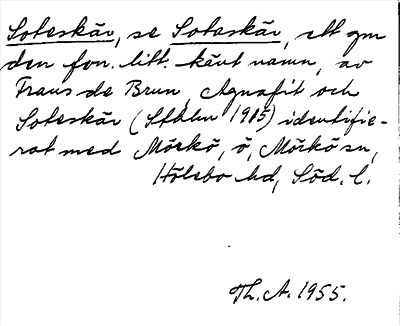 Soteskär, se Sotaskär, ett gm
den fon. litt. känt namn, av
Frans de Brun, Agnafit och
Soteskär (Sthlm 1915) identifie-
rat med Mörkö, ö, Mörkö sn,
Hölebo hd, Söd. l.
Th. A. 1955.